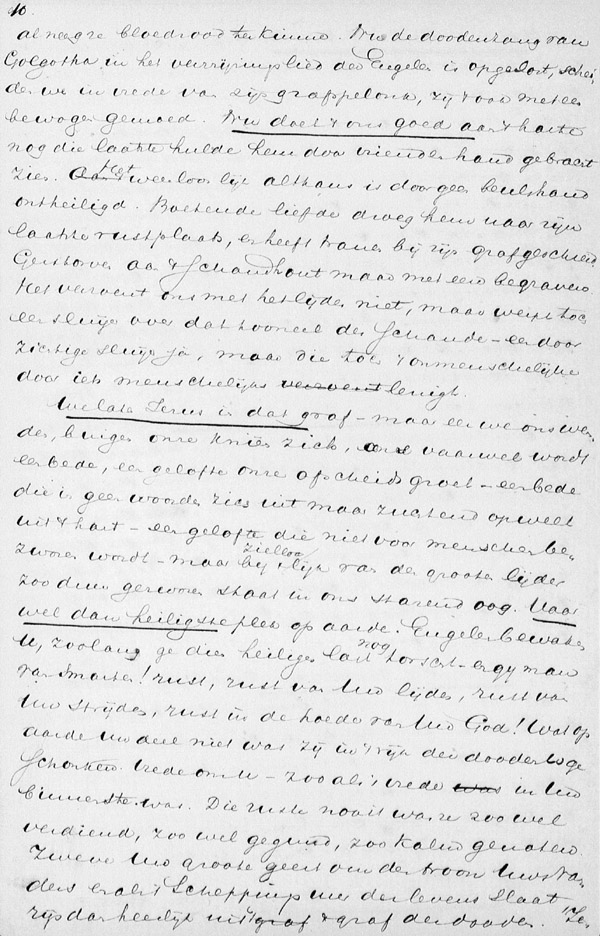 10.
al neegre bloedroodherkinnd. Nu de doodenzang van
Golgotha in het verrijzingslied der Engelen is opgelost, schei-
den we in vrede van zijn grafspelonk, zij 't ook met een
bewogen gemoed. Nu doet 't ons goed aan 't harte
nog die laatste hulde hem door vrienden hand gebracht
zien. Het weerloos lijk althans is door geen beulshand
ontheiligd. Boetende liefde droeg hem naar zijn
laatste rustplaats, en heeft tranen bij zijn graf geschreid
aan 't Schandhout maar met eere begraven.
Het verzoent ons met het lijden niet, maar werpt toch
een sluijer over dat tooneel der Schande - een door
zichtige sluijer ja, maar die toch 't onmenschelijke
door iets menschelijks verzoent lenigt.
Welate Jezus in dat graf - maar eer we ons wen
den, buigen onze knieën zich, ons vaarwel wordt
een bede, een gelofte onze afscheids groet - een bede
die in geen woorden zich uit maar zuchtend opwelt
uit 't hart - een gelofte die niet voor menschen be-
zworen wordt - maar bij 't zielloos lijk van den grooten lijder
zoo dun geworen staat in ons starend oog. Vaar
wel dan heiligste plek op aarde. Engelen bewaken
U, zoolang ge dien heiligen last nog torscht - en gy man
van Smarten! rust, rust van Uw lijden, rust van
Uw strijden, rust in de hoede van Uw God! Wat op
aarde Uw deel niet was zij in 't rijk der dooden U ge
schonken. Vrede om U - zoo als 't vrede was in Uw
binnenste was. Die ruste nooit was ze zoo wel
verdiend, zoo wel gegund, zoo kalm genoten.
Zweve Uw groote geest om den troon Uws Va-
ders en als 't Scheppingsuur des levens slaat
rijs dan heerlijk uit 't graf 't graf der dooden. "Ze-